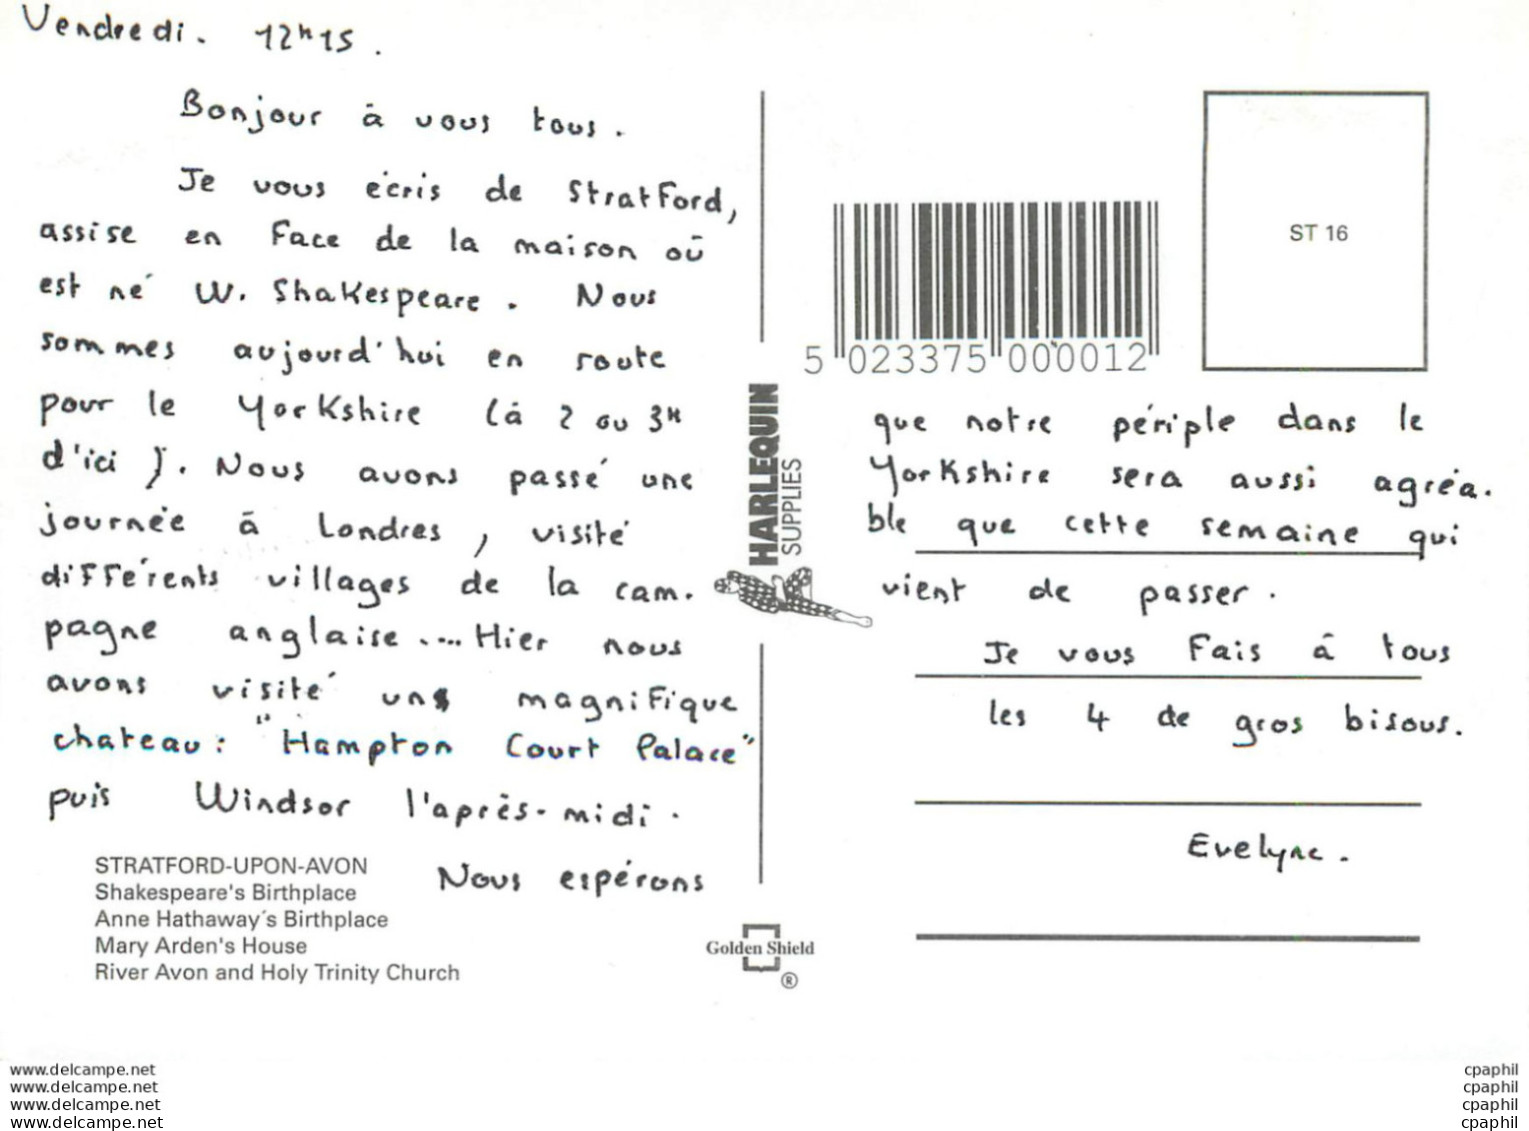 Vendredi. 12h15.
Bonjour à vous tous.
Je vous écris de Stratford,
assise en face de la maison où
est né W. Shakespeare. Nous
sommes aujourd'hui en route
pour le Yorkshire (à 2 ou 3H
d'ici). Nous avons passé une
journée à Londres, visité
différents villages de la cam-
pagne anglaise.... Hier nous
avons visité un magnifique
chateau: "Hampton Court Palace"
puis Windsor l'après-midi.
Nous espérons
STRATFORD-UPON-AVON
Shakespeare's Birthplace
Anne Hathaway's Birthplace
Mary Arden's House
River Avon and Holy Trinity Church
HARLEQUIN
SUPPLIES
Golden Shield
®
5 023375 000012
ST 16
que notre périple dans le
Yorkshire sera aussi agréa-
ble que cette semaine qui
vient de passer.
Je vous fais à tous
les 4 de gros bisous.
Evelyne.
www.delcampe.net
www.delcampe.net
www.delcampe.net
www.delcampe.net
cpaphil
cpaphil
cpaphil
cpaphil